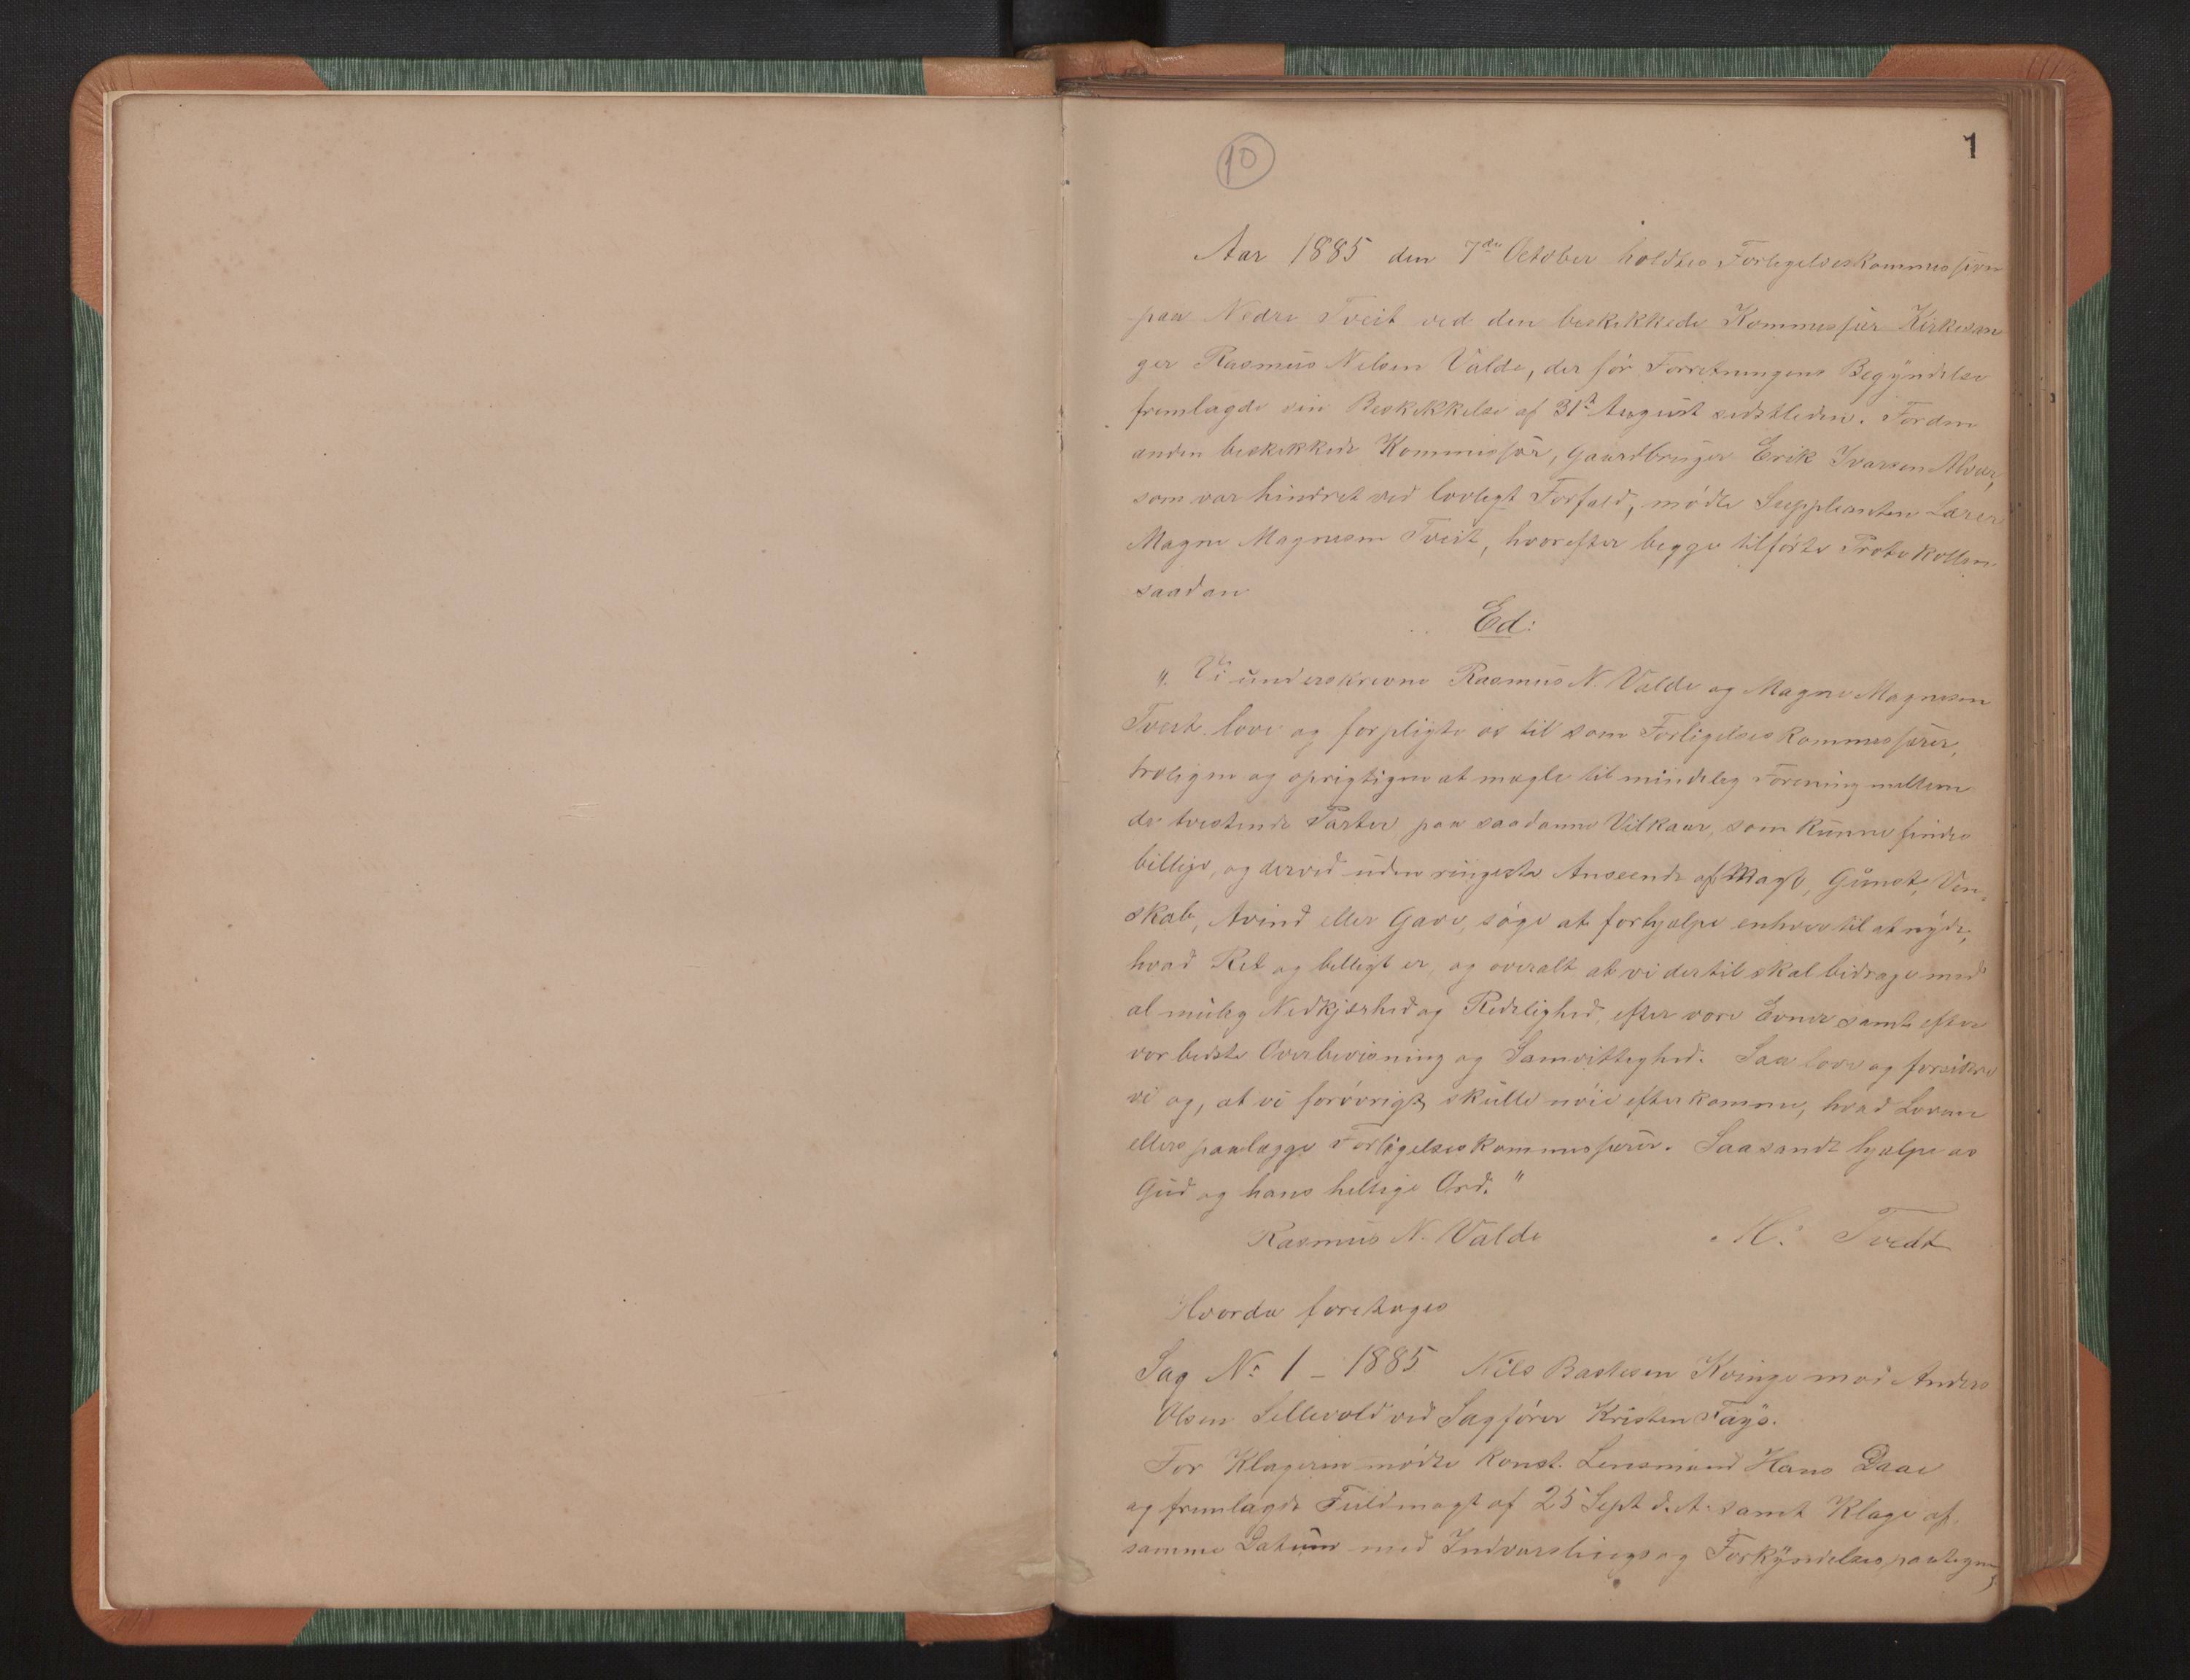 10
1
Aar 1885 den 7de October holdtes Forligelseskommission
paa Nedre Tveit ved den beskikkede Kommissær Kirkesan
ger Rasmus Nelsen Valde, der før Forretningens Begyndelse
fremlagde sin Beskikkelse af 31te August sidstleden. For den
anden beskikkede Kommissær, Gaardbruger Erik Ivarsen
som var hindret ved lovligt Forfald, mødte Suppleanten Lærer
Magne Magnesen Tveit, hvorefter begge tilførte Protokollen
saadan
Ed:
"Vi underskrevne Rasmus N. Valde og Magne Magnesen
Tveit love og forpligte os til som Forligelseskommissærer,
troligen og oprigtigen at mægle til mindelig Forening mellem
de tvistende Parter paa saadanne Vilkaar, som kunne findes
billige, og derved uden ringeste Anseende af Magt, Gunst, Ven-
skab, Avind eller Gave, søge at forhjælpe enhver til at nyde,
hvad Ret og billigt er, og overalt at vi dertil skal bidrage med
al mulig Nidkjærhed og Redelighed, efter vore Evner samt efter
vor bedste Overbevisning og Samvittighed. Saa love og forsikre
vi og, at vi forøvrigt skulle nøie efterkomme, hvad Loven
ellers paalægge Forligelseskommissærer. Saa sandt hjælpe os
Gud og hans hellige Ord."
Rasmus N. Valde M. Tvedt
Hvorda foretages
Sag No 1 – 1885 Nils Bastesen Kvinge mod Anders
Olsen Sellevold ved Sagfører Kristen Fayè.
For Klageren mødte konst. Lensmand Hans Daae
og fremlagde Fuldmagt af 25 Sept d. A. samt Klage af
samme Datum med Indvarslings og Forkyndelsespaategning